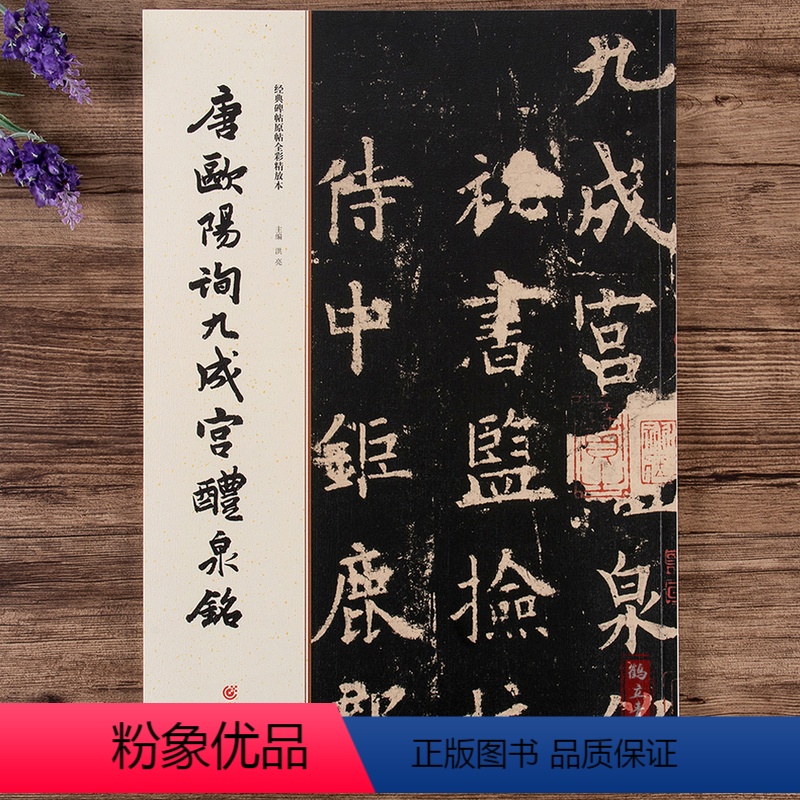 九成宮泉
書監撿
侍中鉅鹿郡
经典碑帖原帖全彩精放本
主编 洪亮
唐歐陽詢九成宮醴泉銘
鹤立
粉象优品
正版图书 品质保证